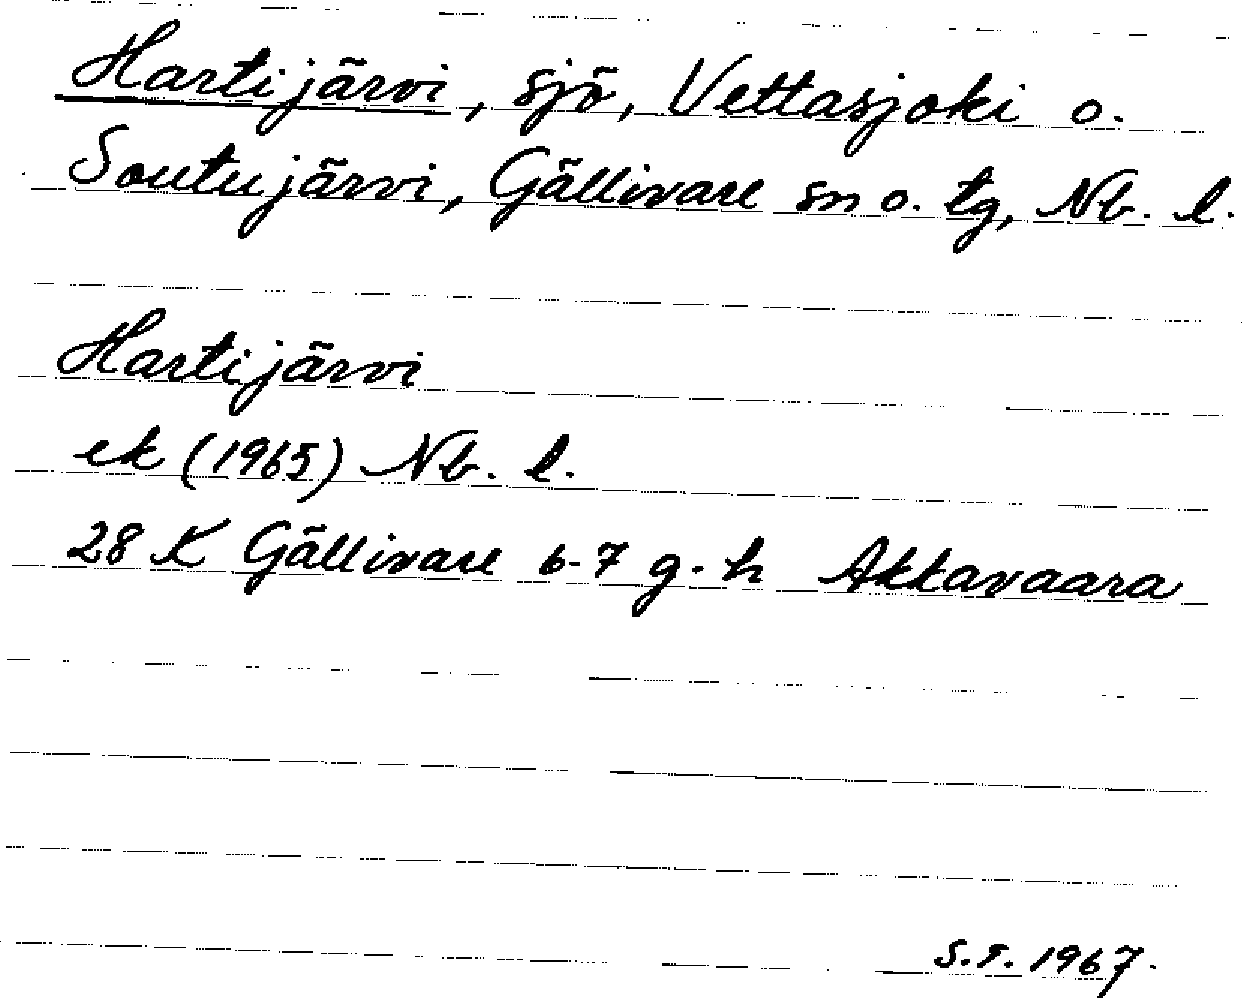 Hartijärvi, sjö, Vettasjoki o.
Soutujärvi, Gällivare sn o. tg, Nb. l.
Hartijärvi
ek (1965) Nb. l.
28 K Gällivare 6-7 g-h Akkavaara
S.S. 1967.